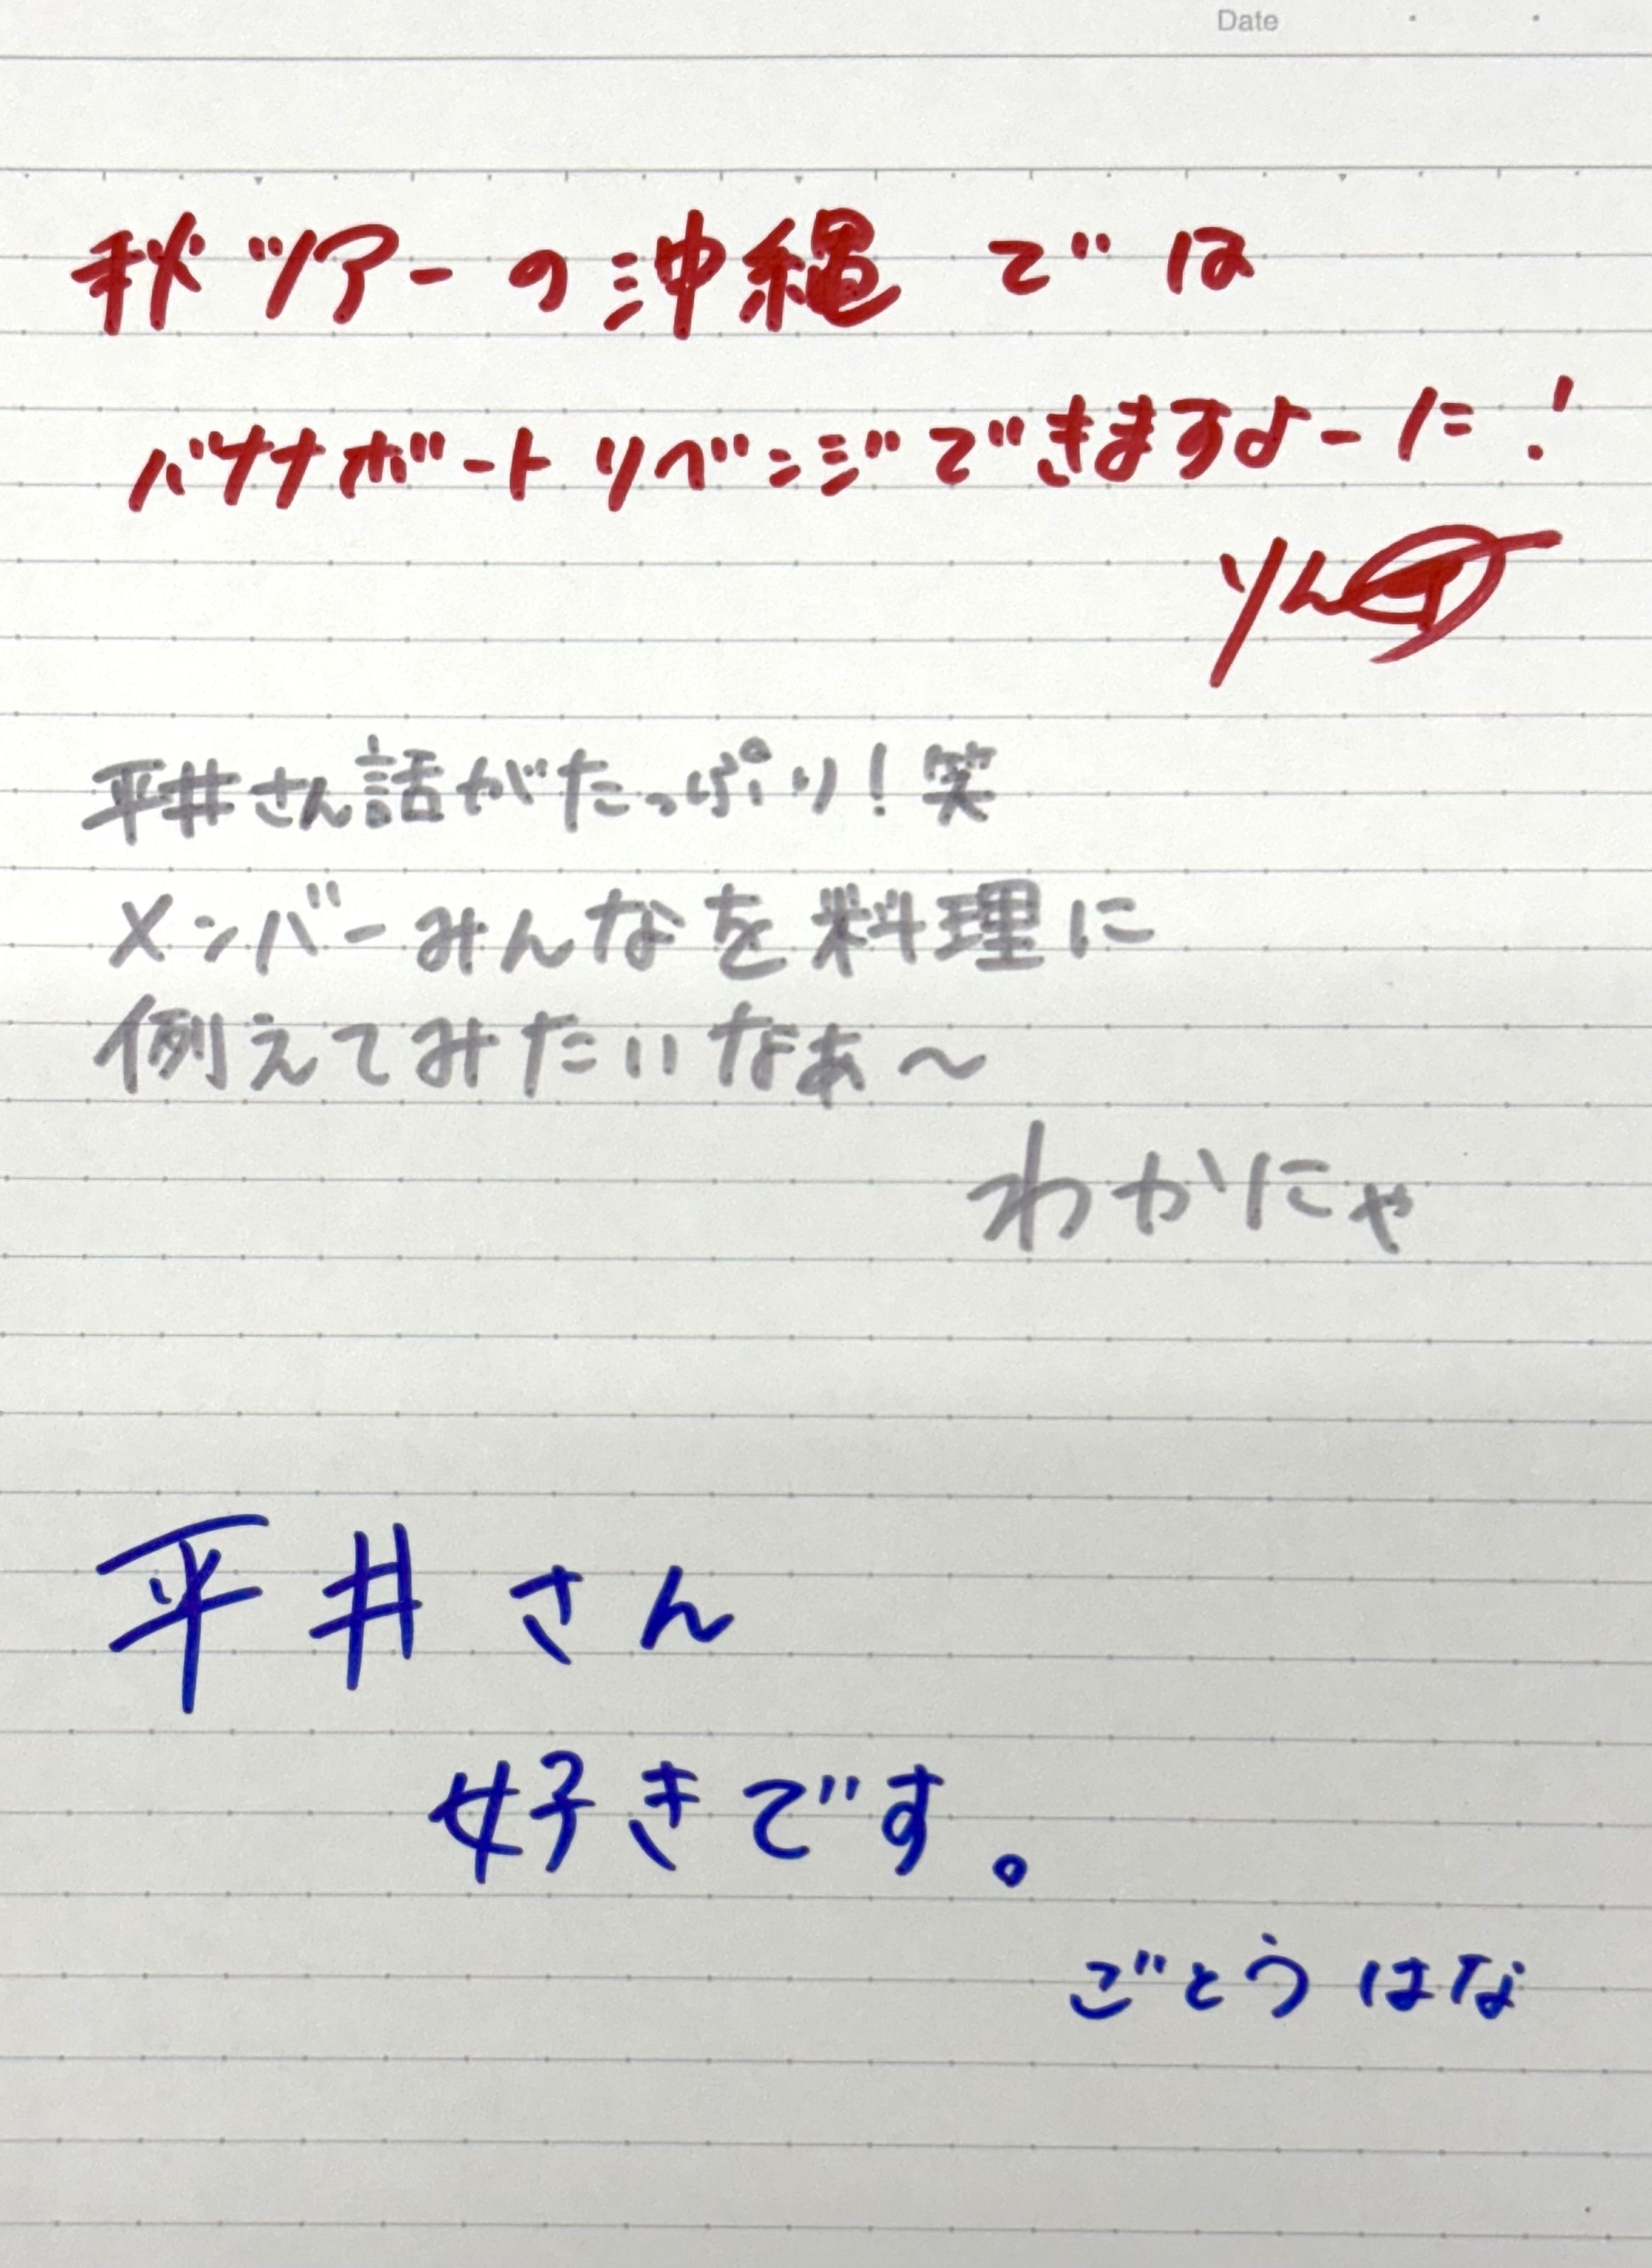 Date
秋ツアーの沖縄では
バナナボートリベンジできますよーに!
りん
平井さん話がたっぷり!笑
メンバーみんなを料理に
例えてみたいなぁ〜
わかにゃ
平井さん
好きです。
ごとうはな